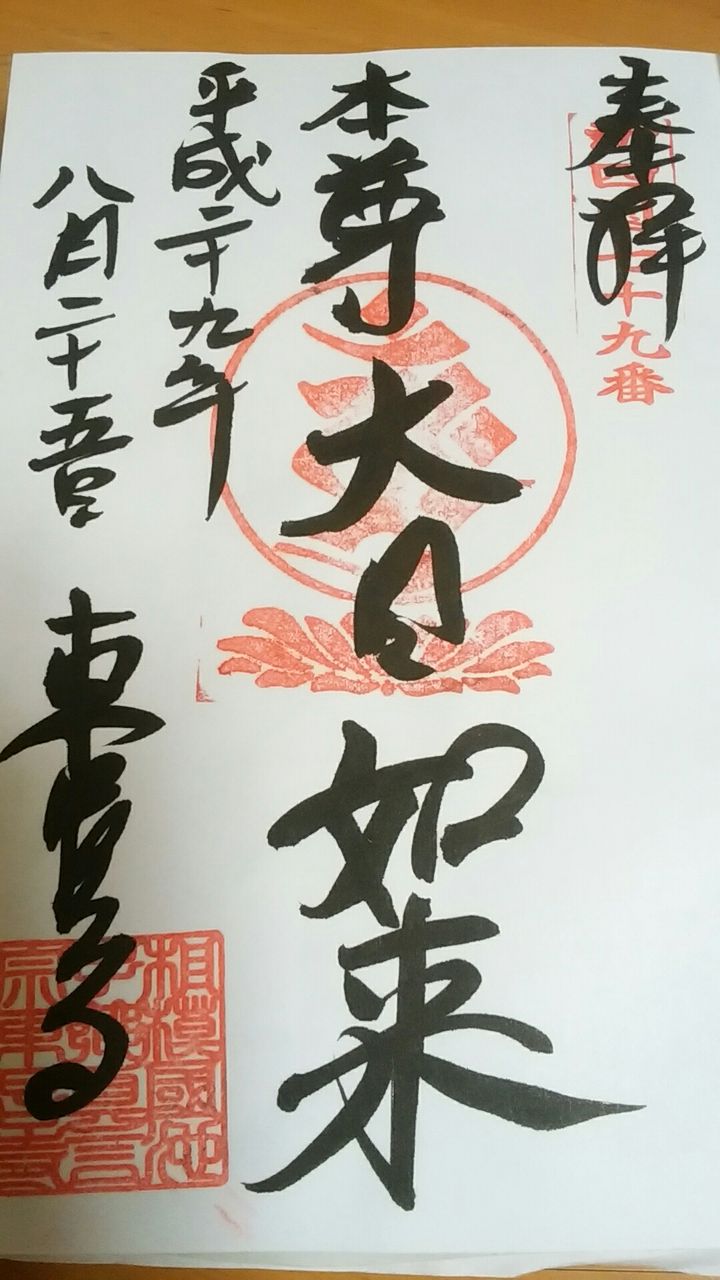 奉拝
十九番
本尊大日如来
平成二十九年
八月二十五日
東昌寺
相模國池